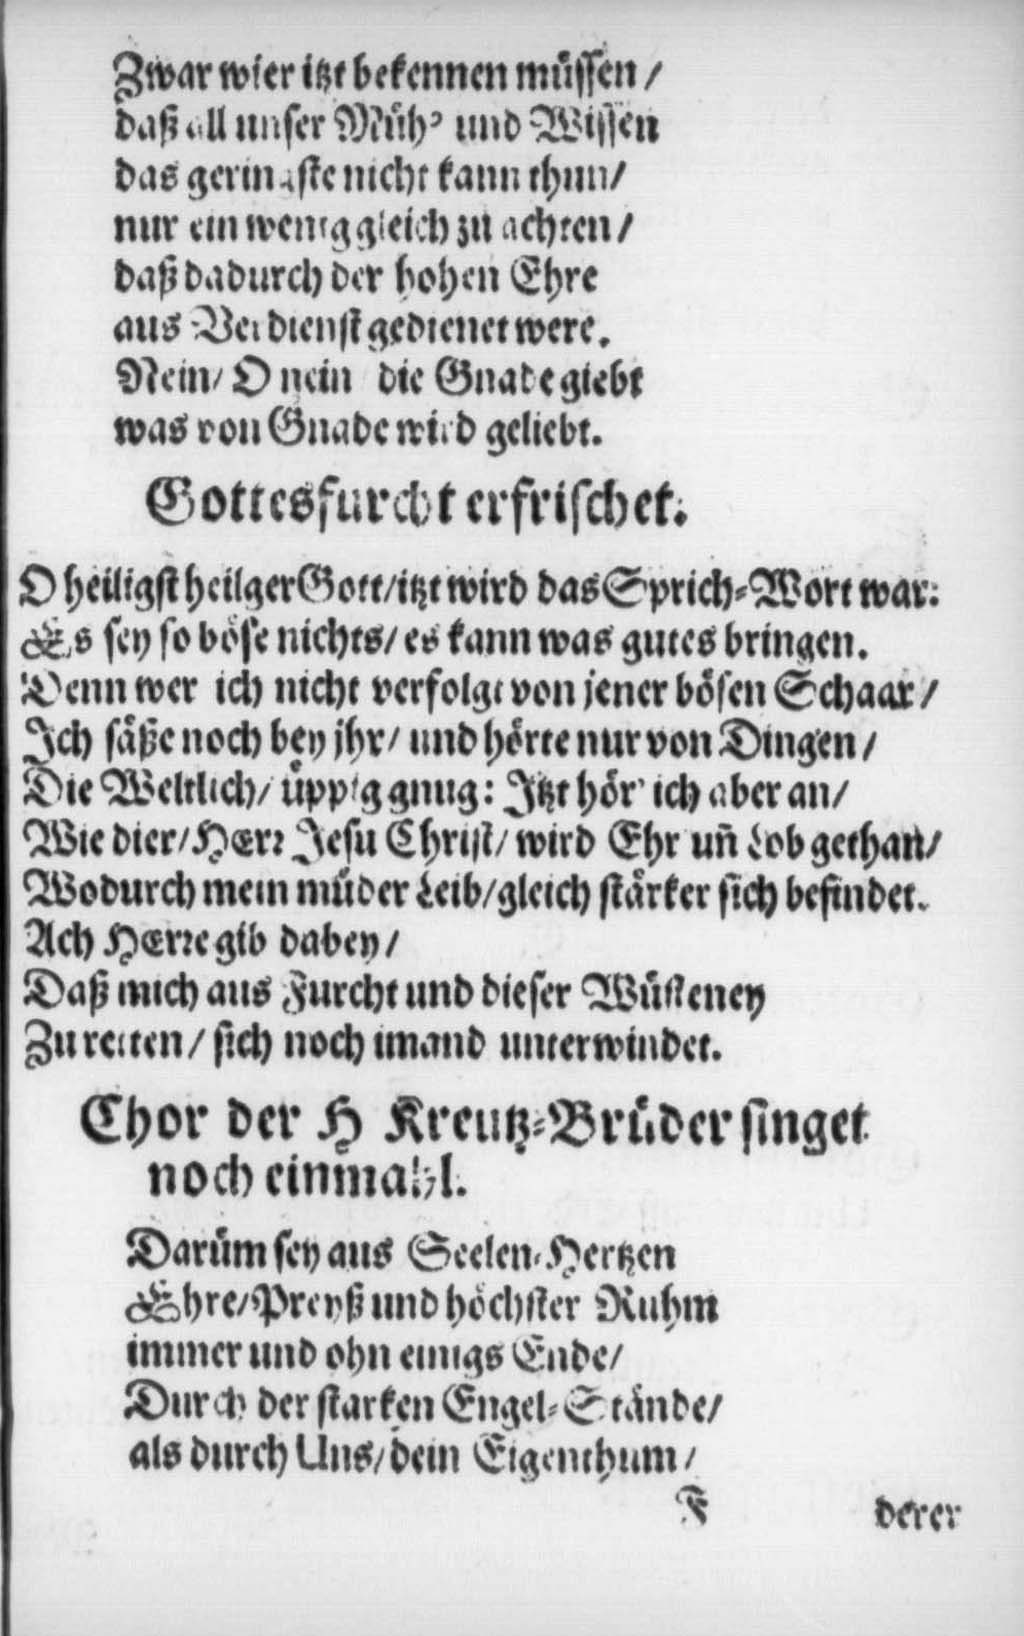 Zwar wier itzt bekennen müſſen /
daß all unſer Müh' und Wiſſen
das geringſte nicht kann thun/
nur ein wenig gleich zu achten/
daß dadurch der hohen Ehre
aus Verdienſt gedienet were.
Nein/ O nein die Gnade giebt
was von Gnade wird geliebt.
Gottesfurcht erfriſchet.
O heiligſt heilger Gott/itzt wird das Sprich-Wort war:
Es ſey ſo böſe nichts/ es kann was gutes bringen.
Denn wer ich nicht verfolgt von jener böſen Schaar/
Ich ſäße noch bey jhr/ und hörte nur von Dingen/
Die Weltlich/ üppig gnug: Jtzt hör' ich aber an/
Wie dier/ HErr Jeſu Chriſt/ wird Ehr uñ Lob gethan/
Wodurch mein müder Leib/gleich ſtärker ſich befindet.
Ach HErre gib dabey/
Daß mich aus Furcht und dieſer Wüſteney
Zu retten/ ſich noch imand unterwindet.
Chor der H Kreutz-Brüder ſinget
noch einmahl.
Darüm ſey aus Seelen-Hertzen
Ehre/Preyß und höchſter Ruhm
immer und ohn einigs Ende/
Durch der ſtarken Engel-Stände/
als durch Uns/dein Eigenthum/
F derer